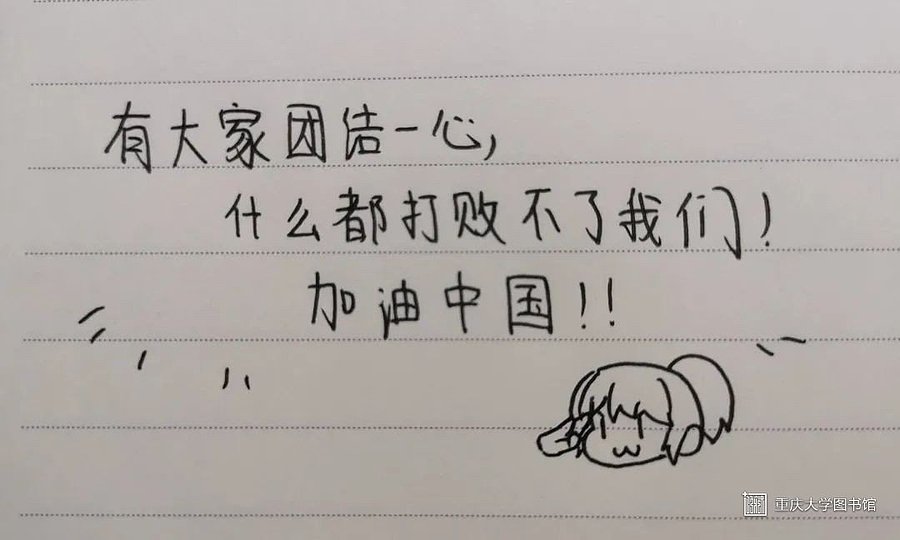 有大家团结一心,
什么都打败不了我们!
加油中国!!
重庆大学图书馆